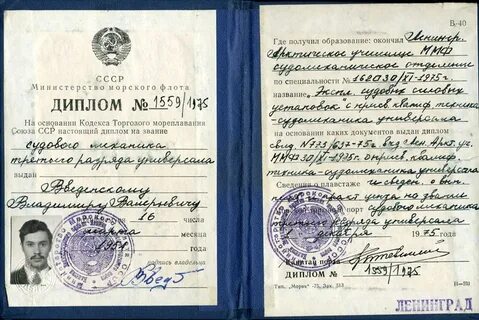 СССР
Министерство морского флота
ДИПЛОМ № 1559/1975
На основании Кодекса Торгового мореплавания
Союза ССР настоящий диплом на звание
судового механика
третьего разряда универсала
выдан
Введенскому
Владимиру Валерьевичу
16 числа
марта месяца
1951 года
подпись владельца
В-40
Где получил образование: окончил Ленингр.
Арктическое училище ММФ
судомеханическое отделение
по специальности № 1612 030/XI-1975г.
"Экспл. судовых силовых
установок" с присв. квалиф. техника
судомеханика универсала
на основании каких документов выдан диплом
свид. № 773/637-75г. выд. Лен. Аркт. уч.
ММФ 30/XI-1975г. о присв. квалиф.
техника-судомеханика универсала
Сведения о плавстаже
на звание
судового механика
третьего разряда универсала
декабря 1975 года
Капитан порта
ДИПЛОМ № 1559/1975
Тип. "Моряк"
ЛЕНИНГРАД